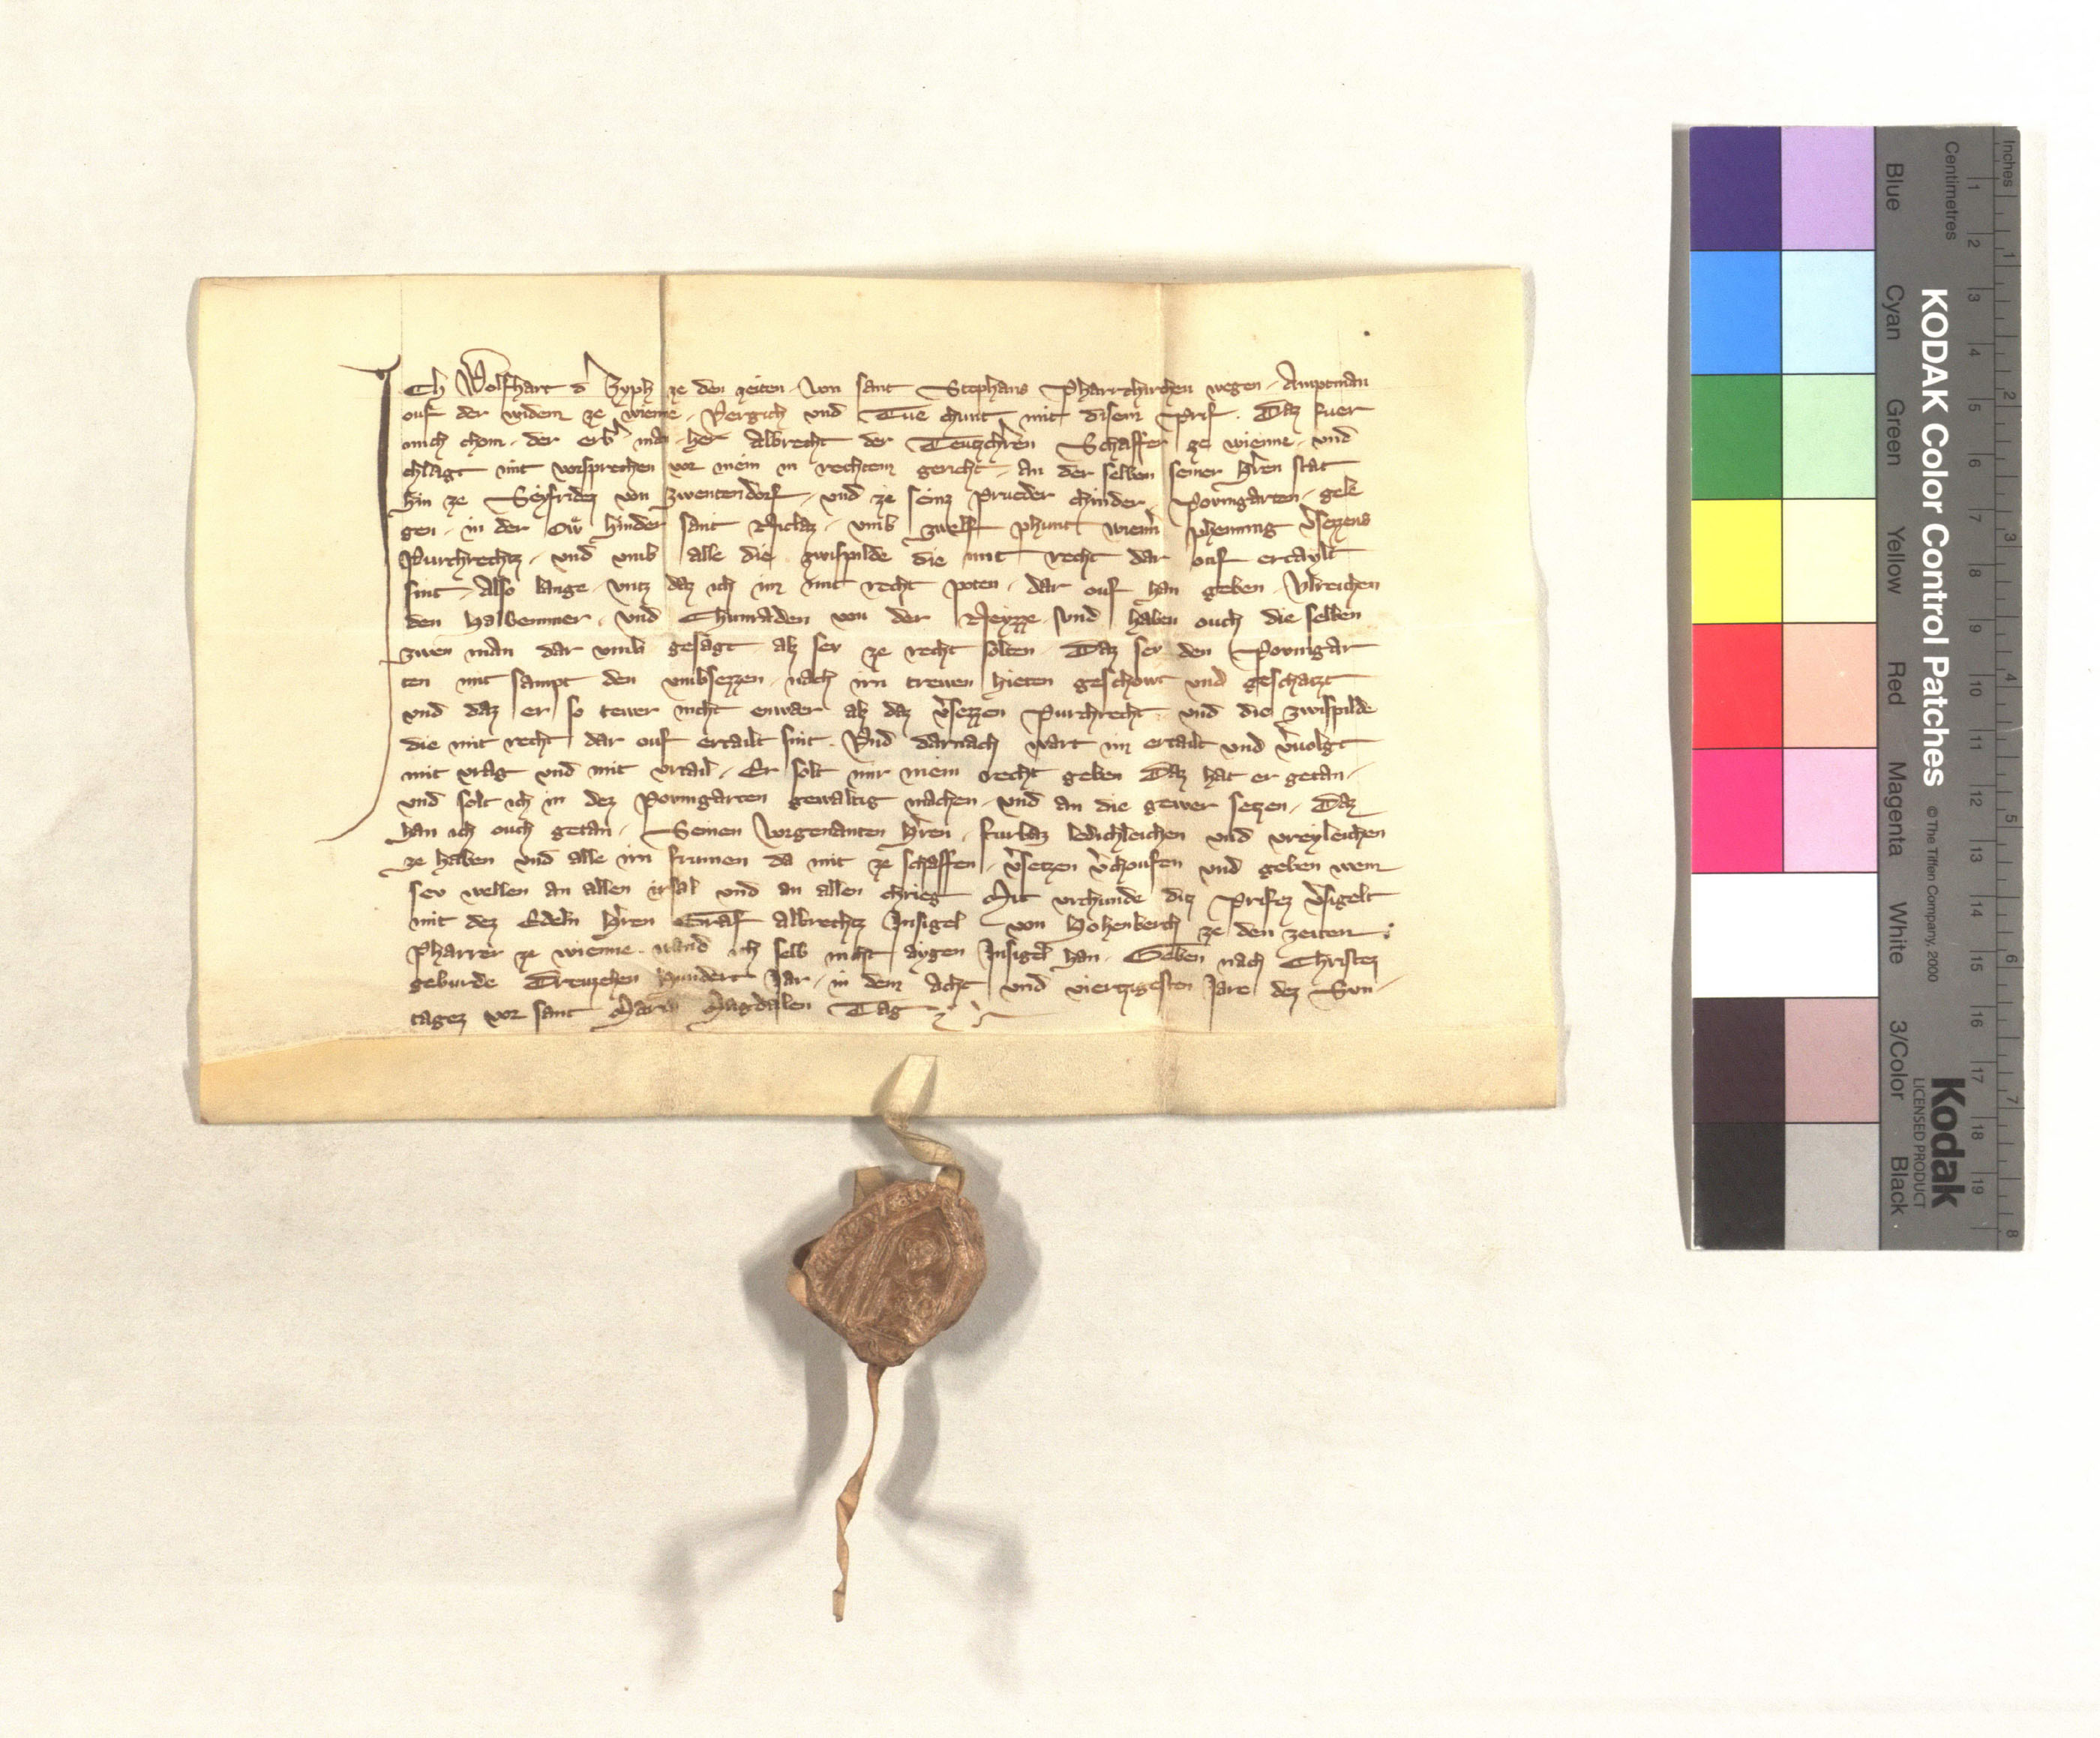 Ich Wolfhart d' Zyph ze den zeiten von sant Stephans Pharrchirchen wegen Amptman
ouf der widem ze wienne Vergich und Tue chunt mit disem Prif Daz fuer
mich chom der erb' man her Albrecht der Teutzch'ren Schaffer ze wienne und
chlagt mit vorsprechen vor mein in rechtem gericht an der selben seiner h'ren stat
hin ze Seyfridez von Zwentendorf und ze seinz Prueder chinder Povmgarten gele
gen in der ow hinder sant Niclaz umb zwelf phunt wienn' phenning v'sezzens
Purchrechtz und umb alle die zwispilde die mit recht dar ouf ertaylt
sint Also lange untz daz ich im mit recht poten dar ouf han geben Ulreichen
den Halbemmer und Chunraden von der Neyzze und haben ouch die selben
zwen man dar umb gesagt alz sev ze recht solten Daz sev den Povmgar
ten mit sampt den umbsezzen nach irn trewen hieten geschowt und geschatzt
und daz er so tewer nicht enwar alz daz v'sezzen Purchrecht und die zwispilde
die mit recht dar ouf ertailt sint Und darnach wart im ertailt und v'volgt
mit vrag und mit urtail Er solt mir mein recht geben Daz hat er getan
und solt ich in dez Povmgarten gewaltig machen und an die gewer setzen Daz
han ich ouch getan Seinen vorgenanten h'ren furbaz ledichleichen und vreyleichen
ze haben und alle irn frumen da mit ze schaffen v'setzen v'choufen und geben wem
sev wellen an allen irsal und an allen chrieg Mit urchunde ditz Prifez v'sigelt
mit dez Edeln h'ren Graf Albrechtz Insigel von Hohenberch ze den zeiten
Pharrer ze wienne wand ich selb nicht aygen Insigel han Geben nach Christez
geburde Dreuzehen hundert Jar in dem acht und viertzigesten Jare dez Sun
tagez vor sant Marie Magdalen Tag
Inches
Centimetres
KODAK Color Control Patches
© The Tiffen Company, 2000
Kodak
LICENSED PRODUCT
Blue Cyan Green Yellow Red Magenta White 3/Color Black
1 2 3 4 5 6 7 8 9 10 11 12 13 14 15 16 17 18 19
1 2 3 4 5 6 7 8